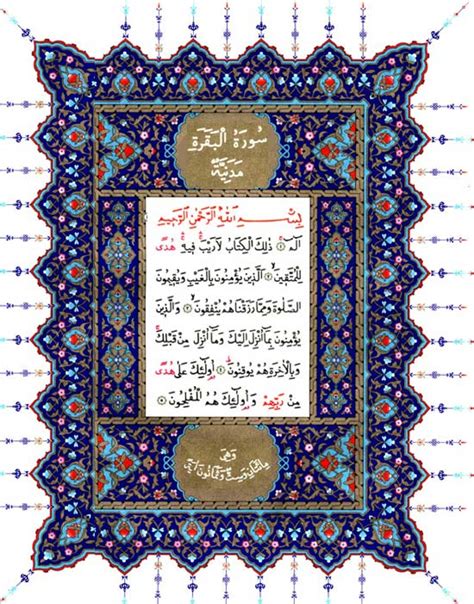 سورة البقرة
مدنية
بسم الله الرحمن الرحيم
الم ۝١ ذلك الكتاب لا ريب فيه هدى
للمتقين ۝٢ الذين يؤمنون بالغيب ويقيمون
الصلوة ومما رزقناهم ينفقون ۝٣ والذين
يؤمنون بما أنزل إليك وما أنزل من قبلك
وبالآخرة هم يوقنون ۝٤ أولئك على هدى
من ربهم وأولئك هم المفلحون ۝٥
وهي
مائتان وست وثمانون آية